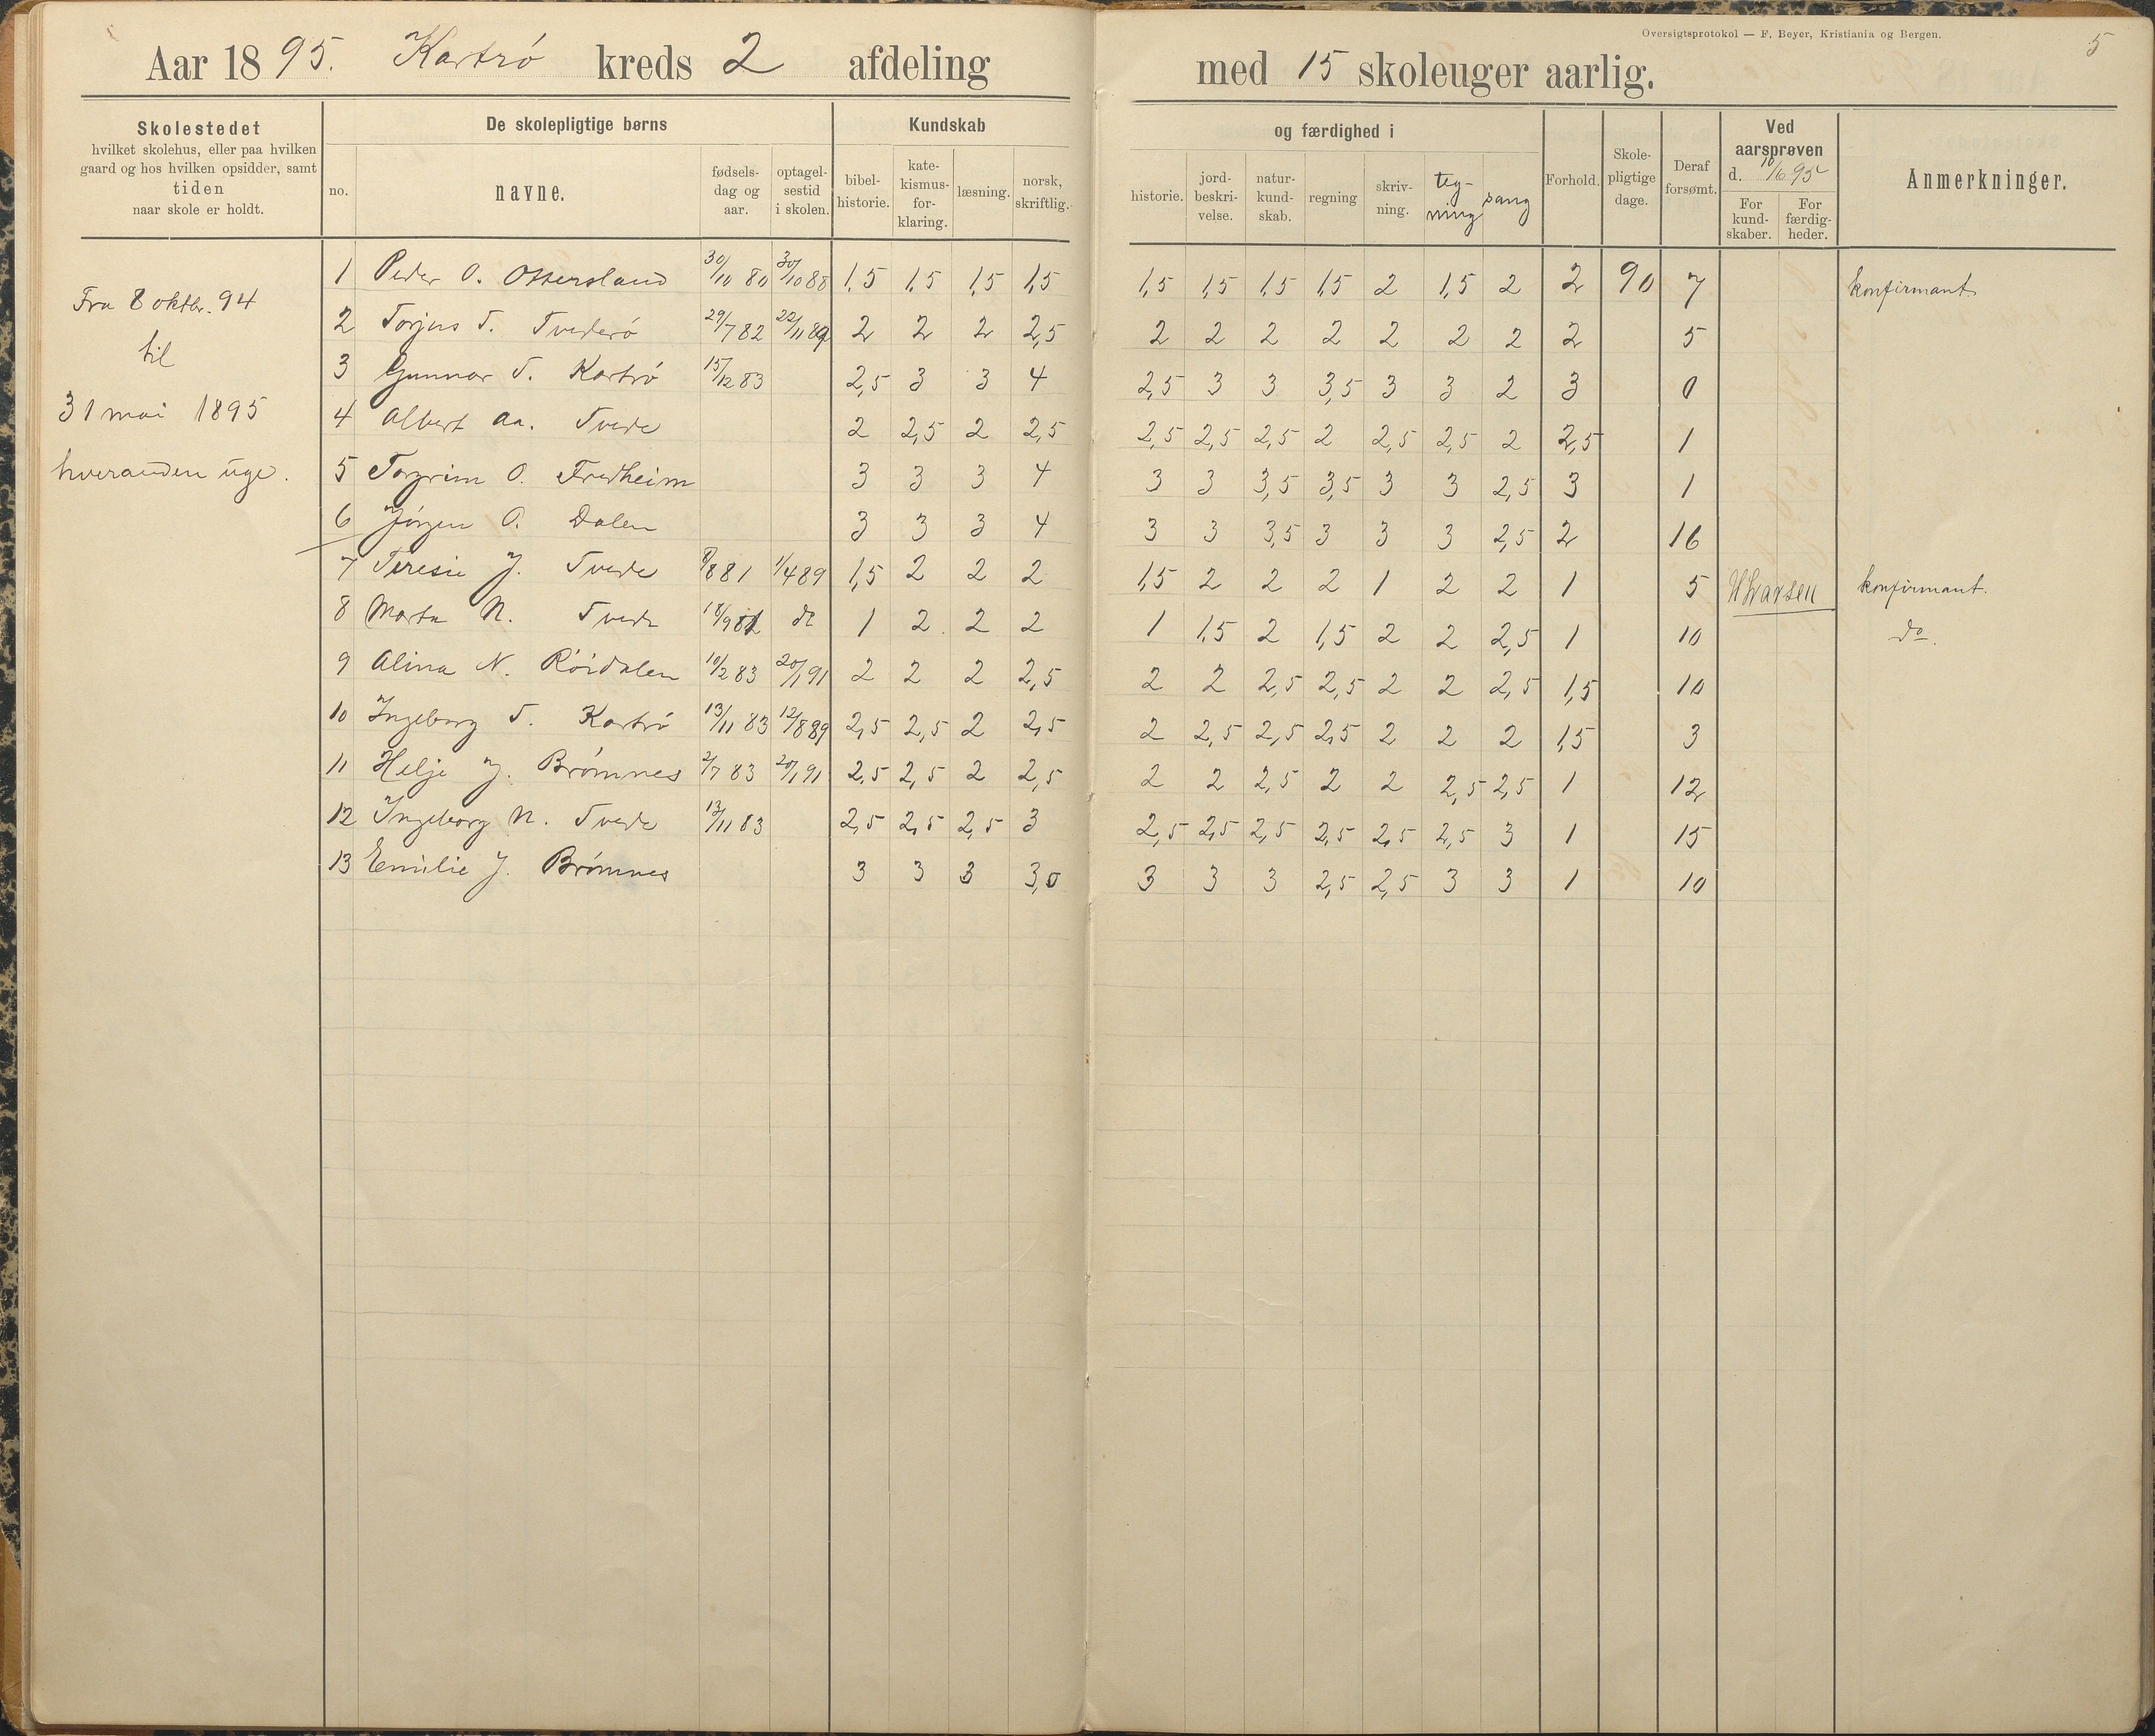 Oversigtsprotokol — F. Beyer, Kristiania og Bergen.
5
Aar 1895. Kartrø kreds 2 afdeling med 15 skoleuger aarlig.
Skolestedet
hvilket skolehus, eller paa hvilken
gaard og hos hvilken opsidder, samt
tiden
naar skole er holdt.
De skolepligtige børns
no.
navne.
fødsels-
dag og
aar.
optagel-
sestid
i skolen.
Kundskab
bibel-
historie.
kate-
kismus-
for-
klaring.
læsning.
norsk,
skriftlig.
og færdighed i
historie.
jord-
beskri-
velse.
natur-
kund-
skab.
regning
skriv-
ning.
teg-
ning
sang
Forhold.
Skole-
pligtige
dage.
Deraf
forsømt.
Ved
aarsprøven
d. 10/6 95
For
kund-
skaber.
For
færdig-
heder.
Anmerkninger.
Fra 8 oktbr. 94
til
31 mai 1895
hveranden uge.
1 Peder O. Ottersland 30/10 80 30/10 88 1,5 1,5 1,5 1,5 1,5 1,5 1,5 1,5 2 1,5 2 2 90 7 konfirmant
2 Torjus T. Tvederø 29/7 82 22/11 89 2 2 2 2,5 2 2 2 2 2 2 2 2 5
3 Gunnar T. Kartrø 15/12 83 2,5 3 3 4 2,5 3 3 3,5 3 3 2 3 0
4 Albert Aa. Tvede 2 2,5 2 2,5 2,5 2,5 2,5 2 2,5 2,5 2 2,5 1
5 Torgrim O. Fredheim 3 3 3 4 3 3 3,5 3,5 3 3 2,5 3 1
6 Jørgen O. Dalen 3 3 3 4 3 3 3,5 3 3 3 2,5 2 16
7 Teresie J. Tvede 8/8 81 1/4 89 1,5 2 2 2 1,5 2 2 2 1 2 2 1 5 konfirmant.
8 Marta N. Tvede 18/9 81 do 1 2 2 2 1 1,5 2 1,5 2 2 2,5 1 10 do.
9 Alina N. Röidalen 10/2 83 20/1 91 2 2 2 2,5 2 2 2,5 2,5 2 2 2,5 1,5 10
10 Ingeborg T. Kartrø 13/11 83 12/8 89 2,5 2,5 2 2,5 2 2,5 2,5 2,5 2 2 2 1,5 3
11 Helje J. Brømnes 2/7 83 20/1 91 2,5 2,5 2 2,5 2 2 2,5 2 2 2,5 2,5 1 12
12 Ingeborg N. Tvede 13/11 83 2,5 2,5 2,5 3 2,5 2,5 2,5 2,5 2,5 2,5 3 1 15
13 Emilie J. Brømnes 3 3 3 3,0 3 3 3 2,5 2,5 3 3 1 10